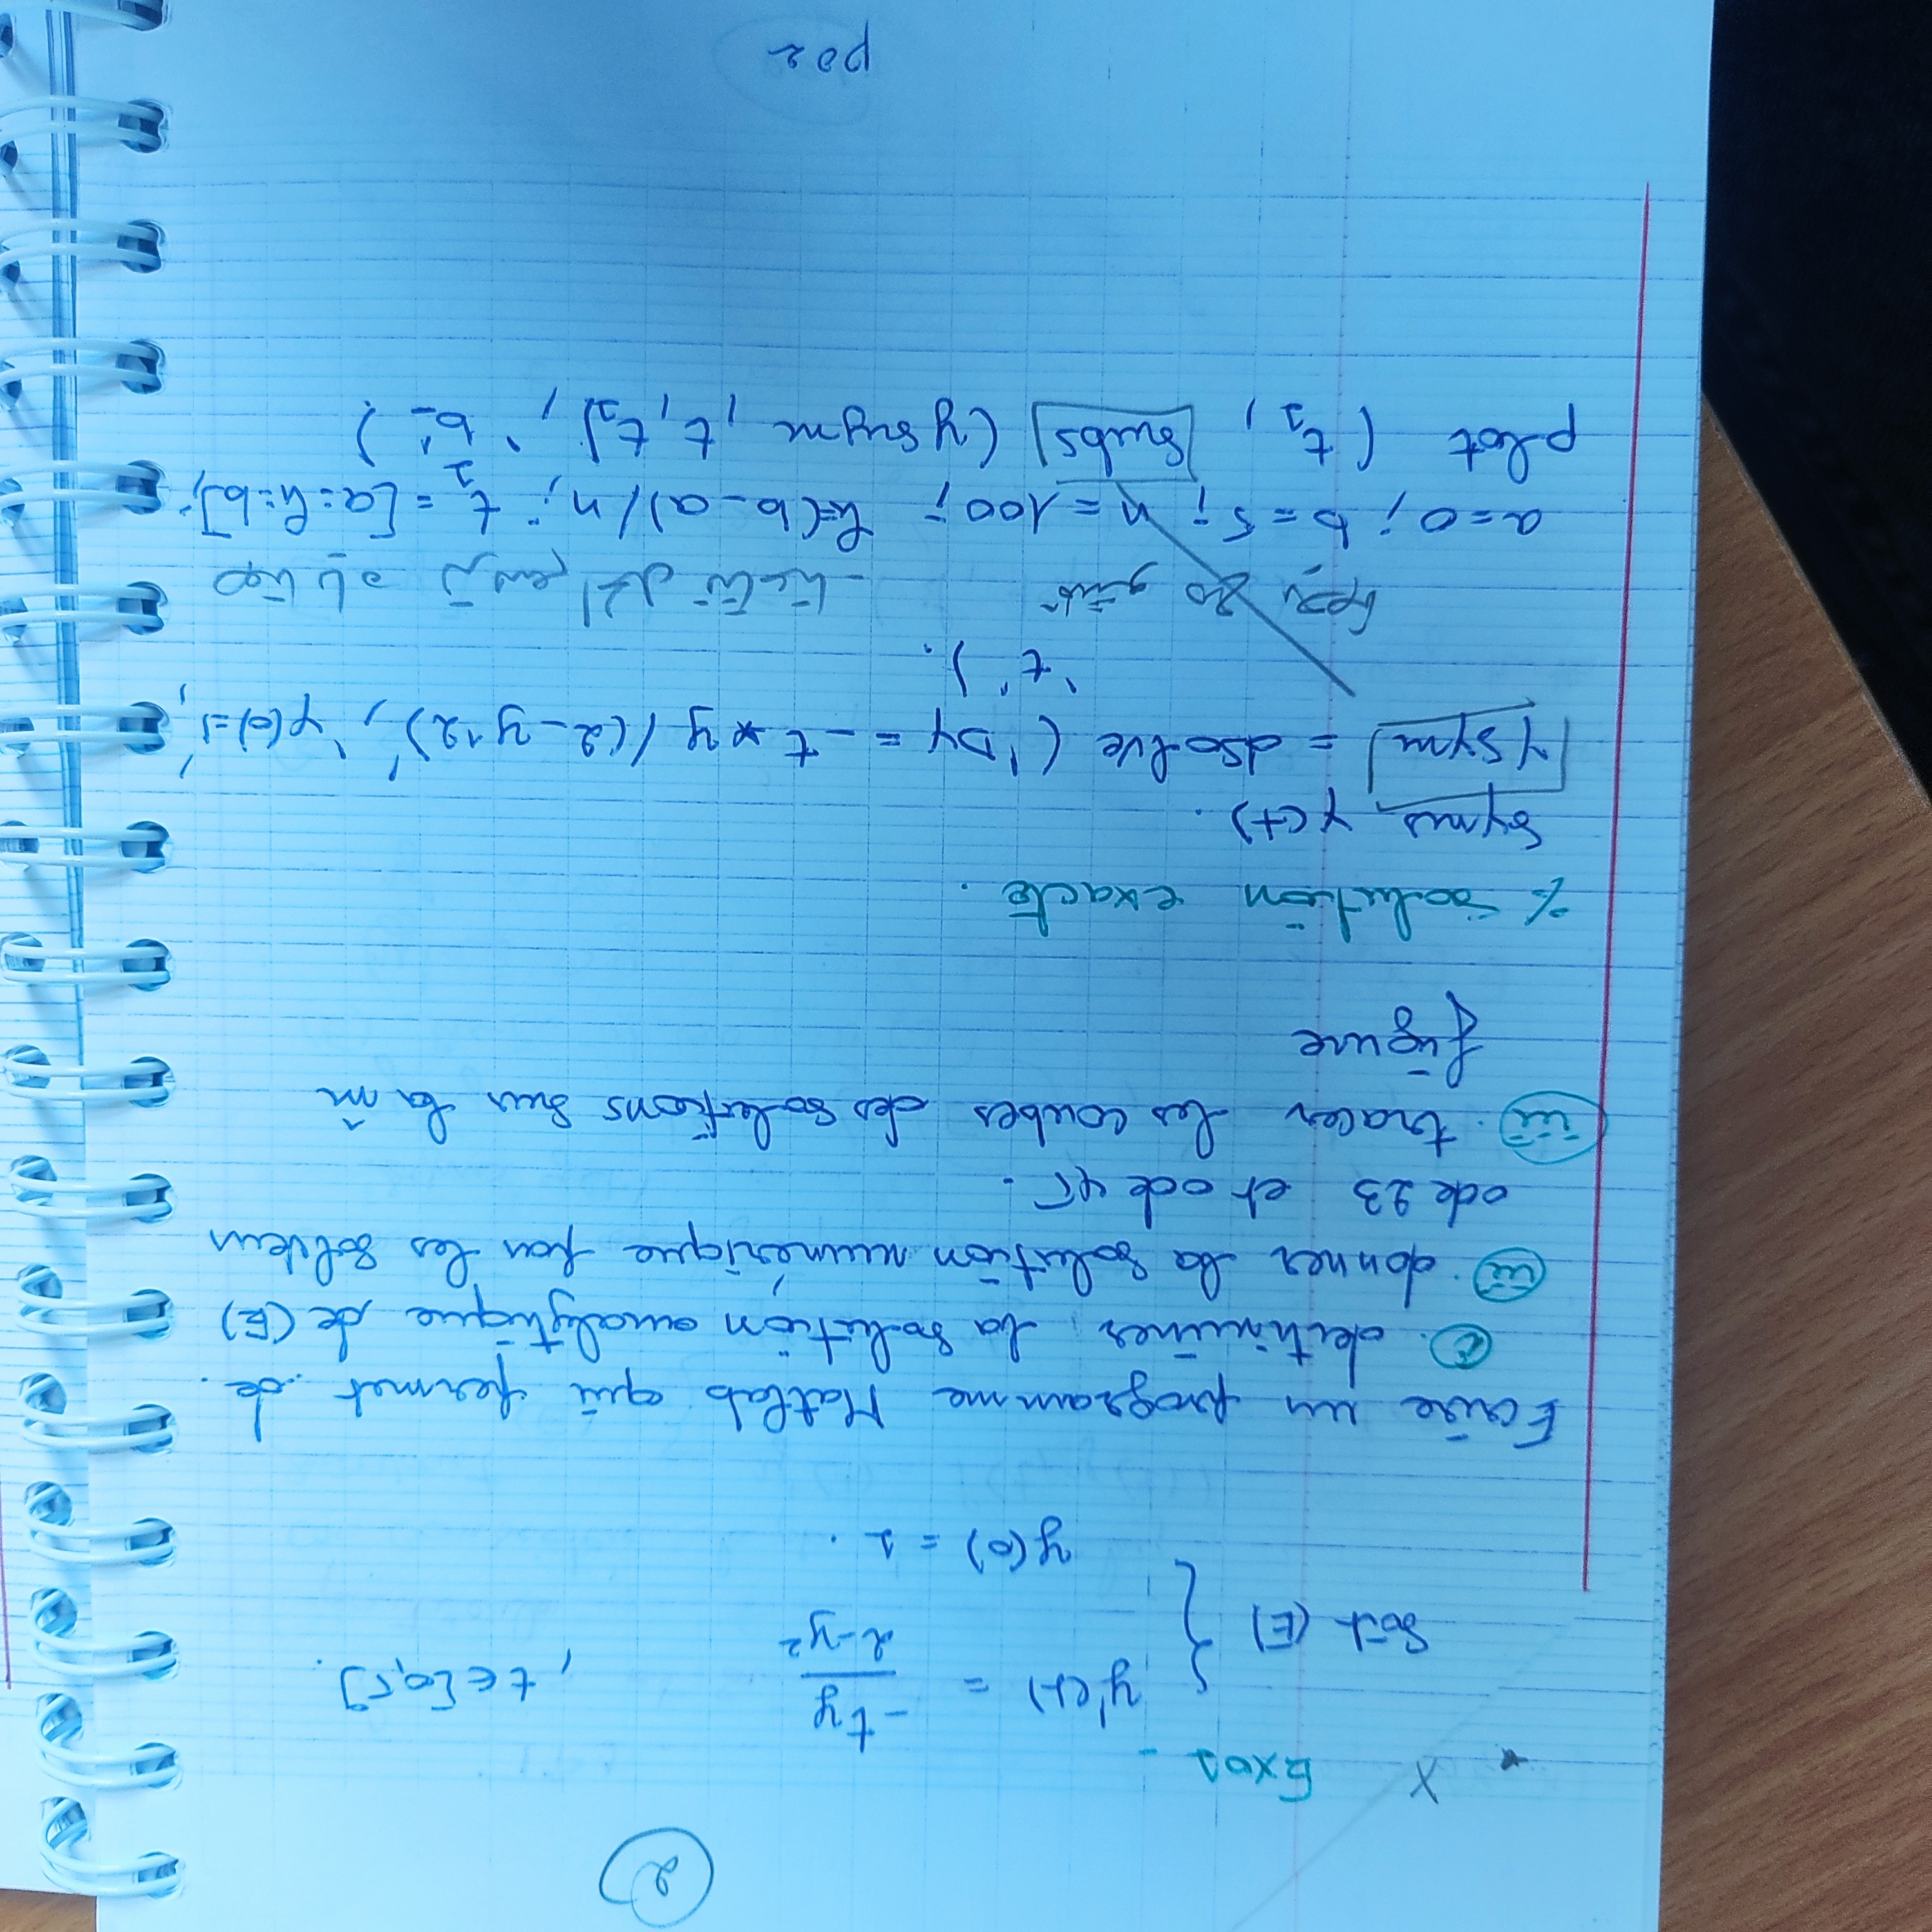 2
x Exo1 -
Soit (E) { y'(t) = -ty / 2-y² , t ∈ [0,5].
y(0) = 1 .
Ecrire un programme Matlab qui permet de.
i. detiminer la solution analytique de (E)
ii. donner la solution numérique par les solveur
ode 23 et ode 45.
iii. tracer les coubes des solutions sur la m̂
figure
% solution exacte.
Syms y(t).
ysym = dsolve ('Dy = -t*y/(2-y^2)', 'y(0)=1',
't').
ترسم الحل تاعنا
a=0; b=5; n=100; h=(b-a)/n; t1=[a:h:b];
plot (t1, subs (ysym, t, t1), 'b-')
P02